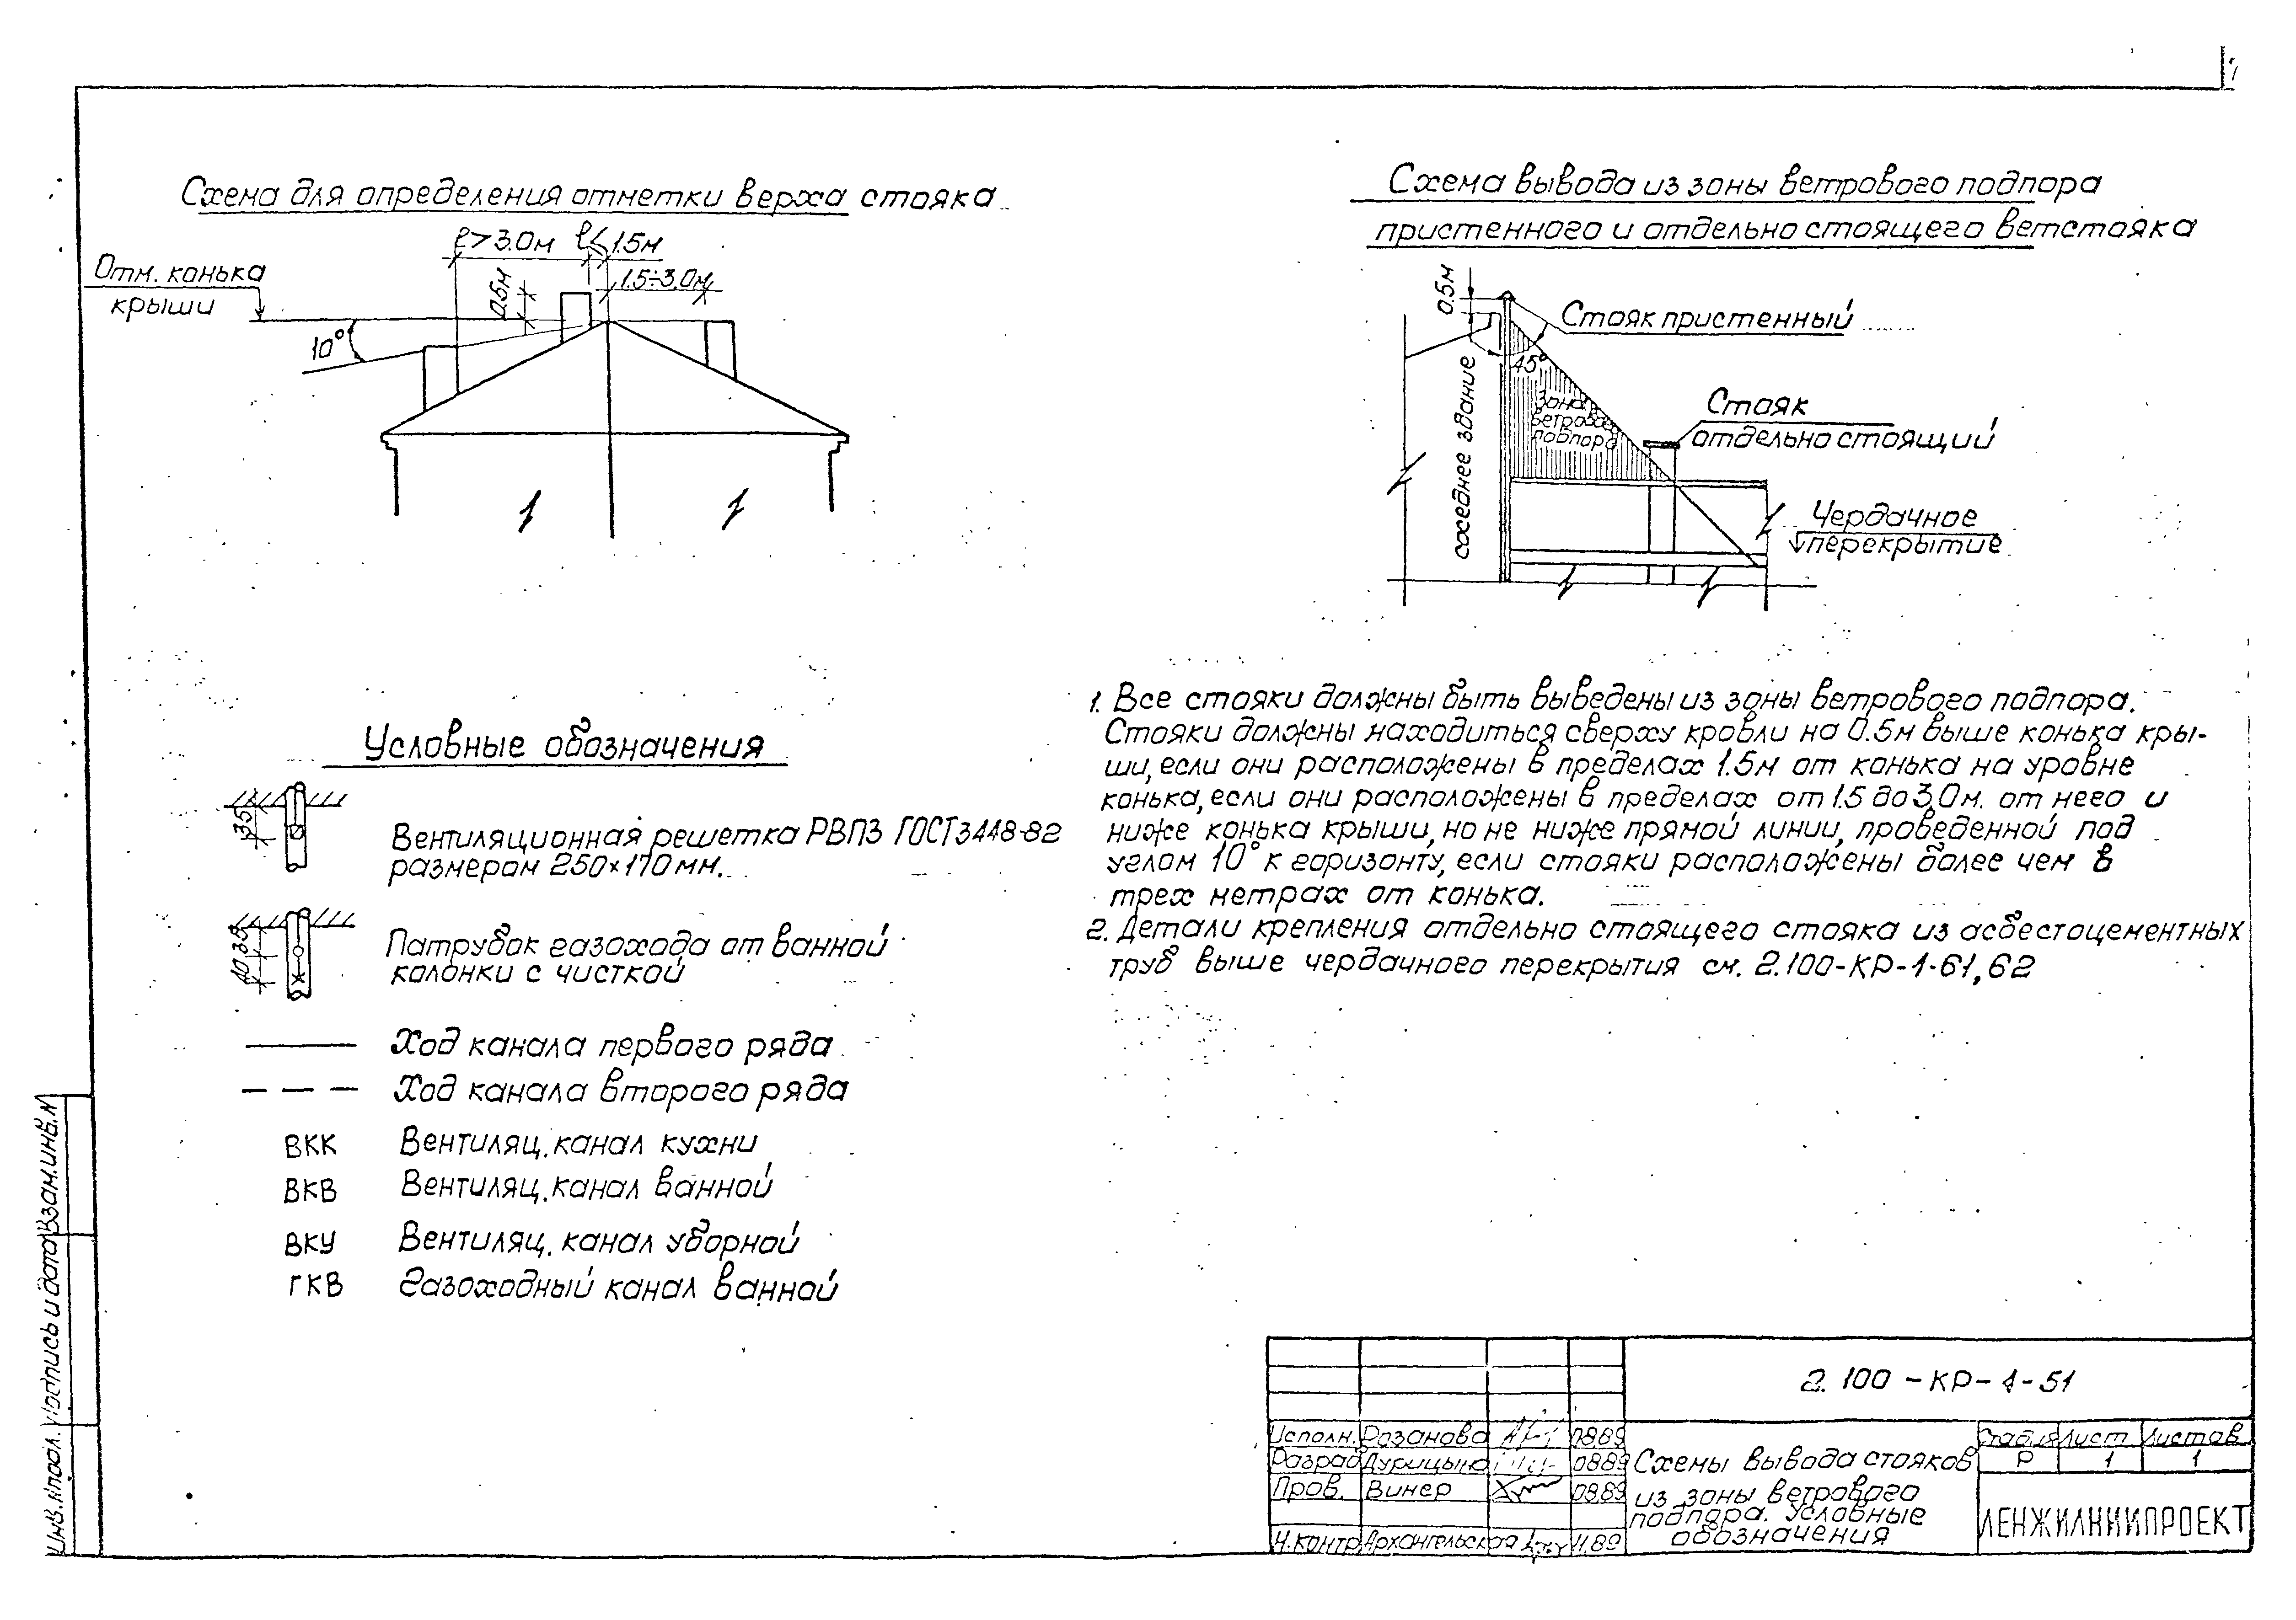 Схема для определения отметки верха стояка
ℓ>3.0м ℓ≤1.5м
1.5÷3.0м
0.5м
Отм. конька
крыши
10°
Схема вывода из зоны ветрового подпора
пристенного и отдельно стоящего ветстояка
0.5м
Стояк пристенный
45°
Зона
ветрового
подпора
соседнее здание
Стояк
отдельно стоящий
Чердачное
перекрытие
Условные обозначения
35
Вентиляционная решетка РВПЗ ГОСТ 3448-82
размером 250×170мм.
40 35
Патрубок газохода от ванной
колонки с чисткой
Ход канала первого ряда
Ход канала второго ряда
ВКК Вентиляц. канал кухни
ВКВ Вентиляц. канал ванной
ВКУ Вентиляц. канал уборной
ГКВ Газоходный канал ванной
1. Все стояки должны быть выведены из зоны ветрового подпора.
Стояки должны находиться сверху кровли на 0.5м выше конька кры-
ши, если они расположены в пределах 1.5м от конька на уровне
конька, если они расположены в пределах от 1.5 до 3,0м. от него и
ниже конька крыши, но не ниже прямой линии, проведенной под
углом 10° к горизонту, если стояки расположены более чем в
трех метрах от конька.
2. Детали крепления отдельно стоящего стояка из асбестоцементных
труб выше чердачного перекрытия см. 2.100-КР-1-61,62
Инв.№подл. Подпись и дата Взам.инв.№
2.100-КР-1-51
Исполн. Розанова 08.89
Разраб Дурицына 08.89
Пров. Винер 08.89
Н.контр Архангельская 11.89
Схемы вывода стояков
из зоны ветрового
подпора. Условные
обозначения
Стадия Лист Листов
Р 1 1
ЛЕНЖИЛНИИПРОЕКТ